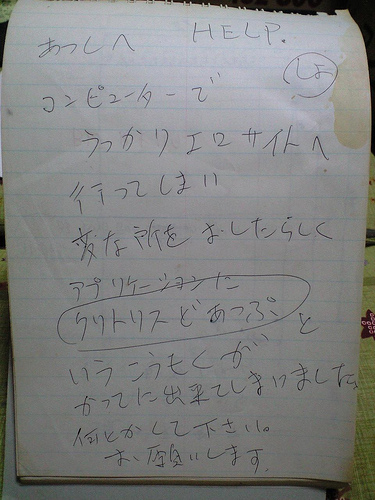 あつしへ HELP.
しょ
コンピューターで
うっかりエロサイトへ
行ってしまい
変な所をおしたらしく
アプリケーションに
クリトリスどあっぷと
いうこうもくが
かってに出来てしまいました。
何とかして下さい。
お願いします。